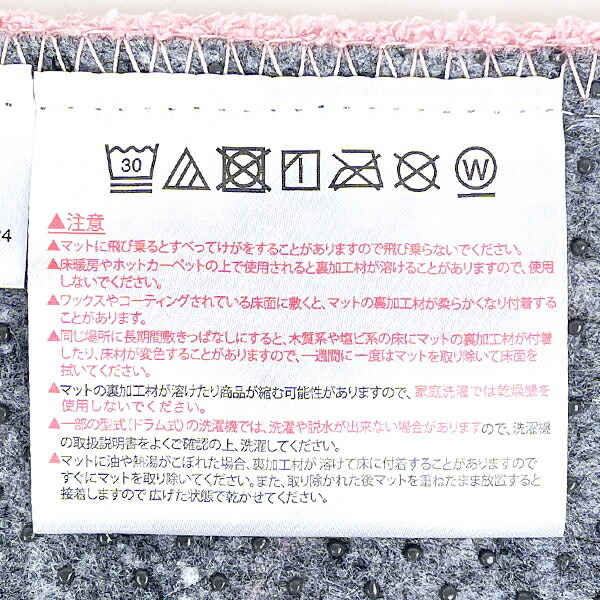 30
W
24
▲注意
▲マットに飛び乗るとすべってけがをすることがありますので飛び乗らないでください。
▲床暖房やホットカーペットの上で使用されると裏加工材が溶けることがありますので、使用
しないでください。
▲ワックスやコーティングされている床面に敷くと、マットの裏加工材が柔らかくなり付着する
ことがあります。
▲同じ場所に長期間敷きっぱなしにすると、木質系や塩ビ系の床にマットの裏加工材が付着
したり、床材が変色することがありますので、一週間に一度はマットを取り除いて床面を
拭いてください。
▲マットの裏加工材が溶けたり商品が縮む可能性がありますので、家庭洗濯では乾燥機を
使用しないでください。
▲一部の型式(ドラム式)の洗濯機では、洗濯や脱水が出来ない場合がありますので、洗濯機
の取扱説明書をよくご確認の上、洗濯してください。
▲マットに油や熱湯がこぼれた場合、裏加工材が溶けて床に付着することがありますので
すぐにマットを取り除いてください。また、取り除かれた後マットを重ねたまま放置すると
接着しますので広げた状態で乾かせてください。